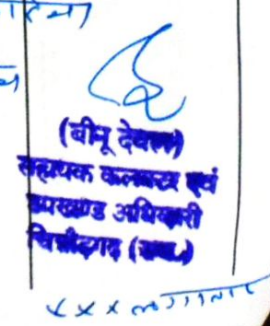 (बीनू देवल)
सहायक कलक्टर एवं
उपखण्ड अधिकारी
चित्तौड़गढ़ (राज.)
× × × लगातार